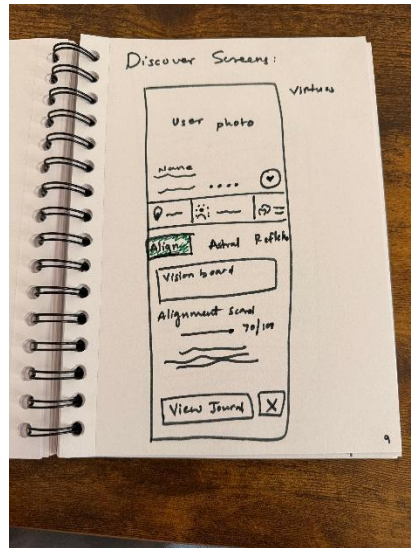 Discover Screens:
Virtues
User photo
Name
Align Astral Reflect
Vision board
Alignment Score
70/100
View Journal X
9